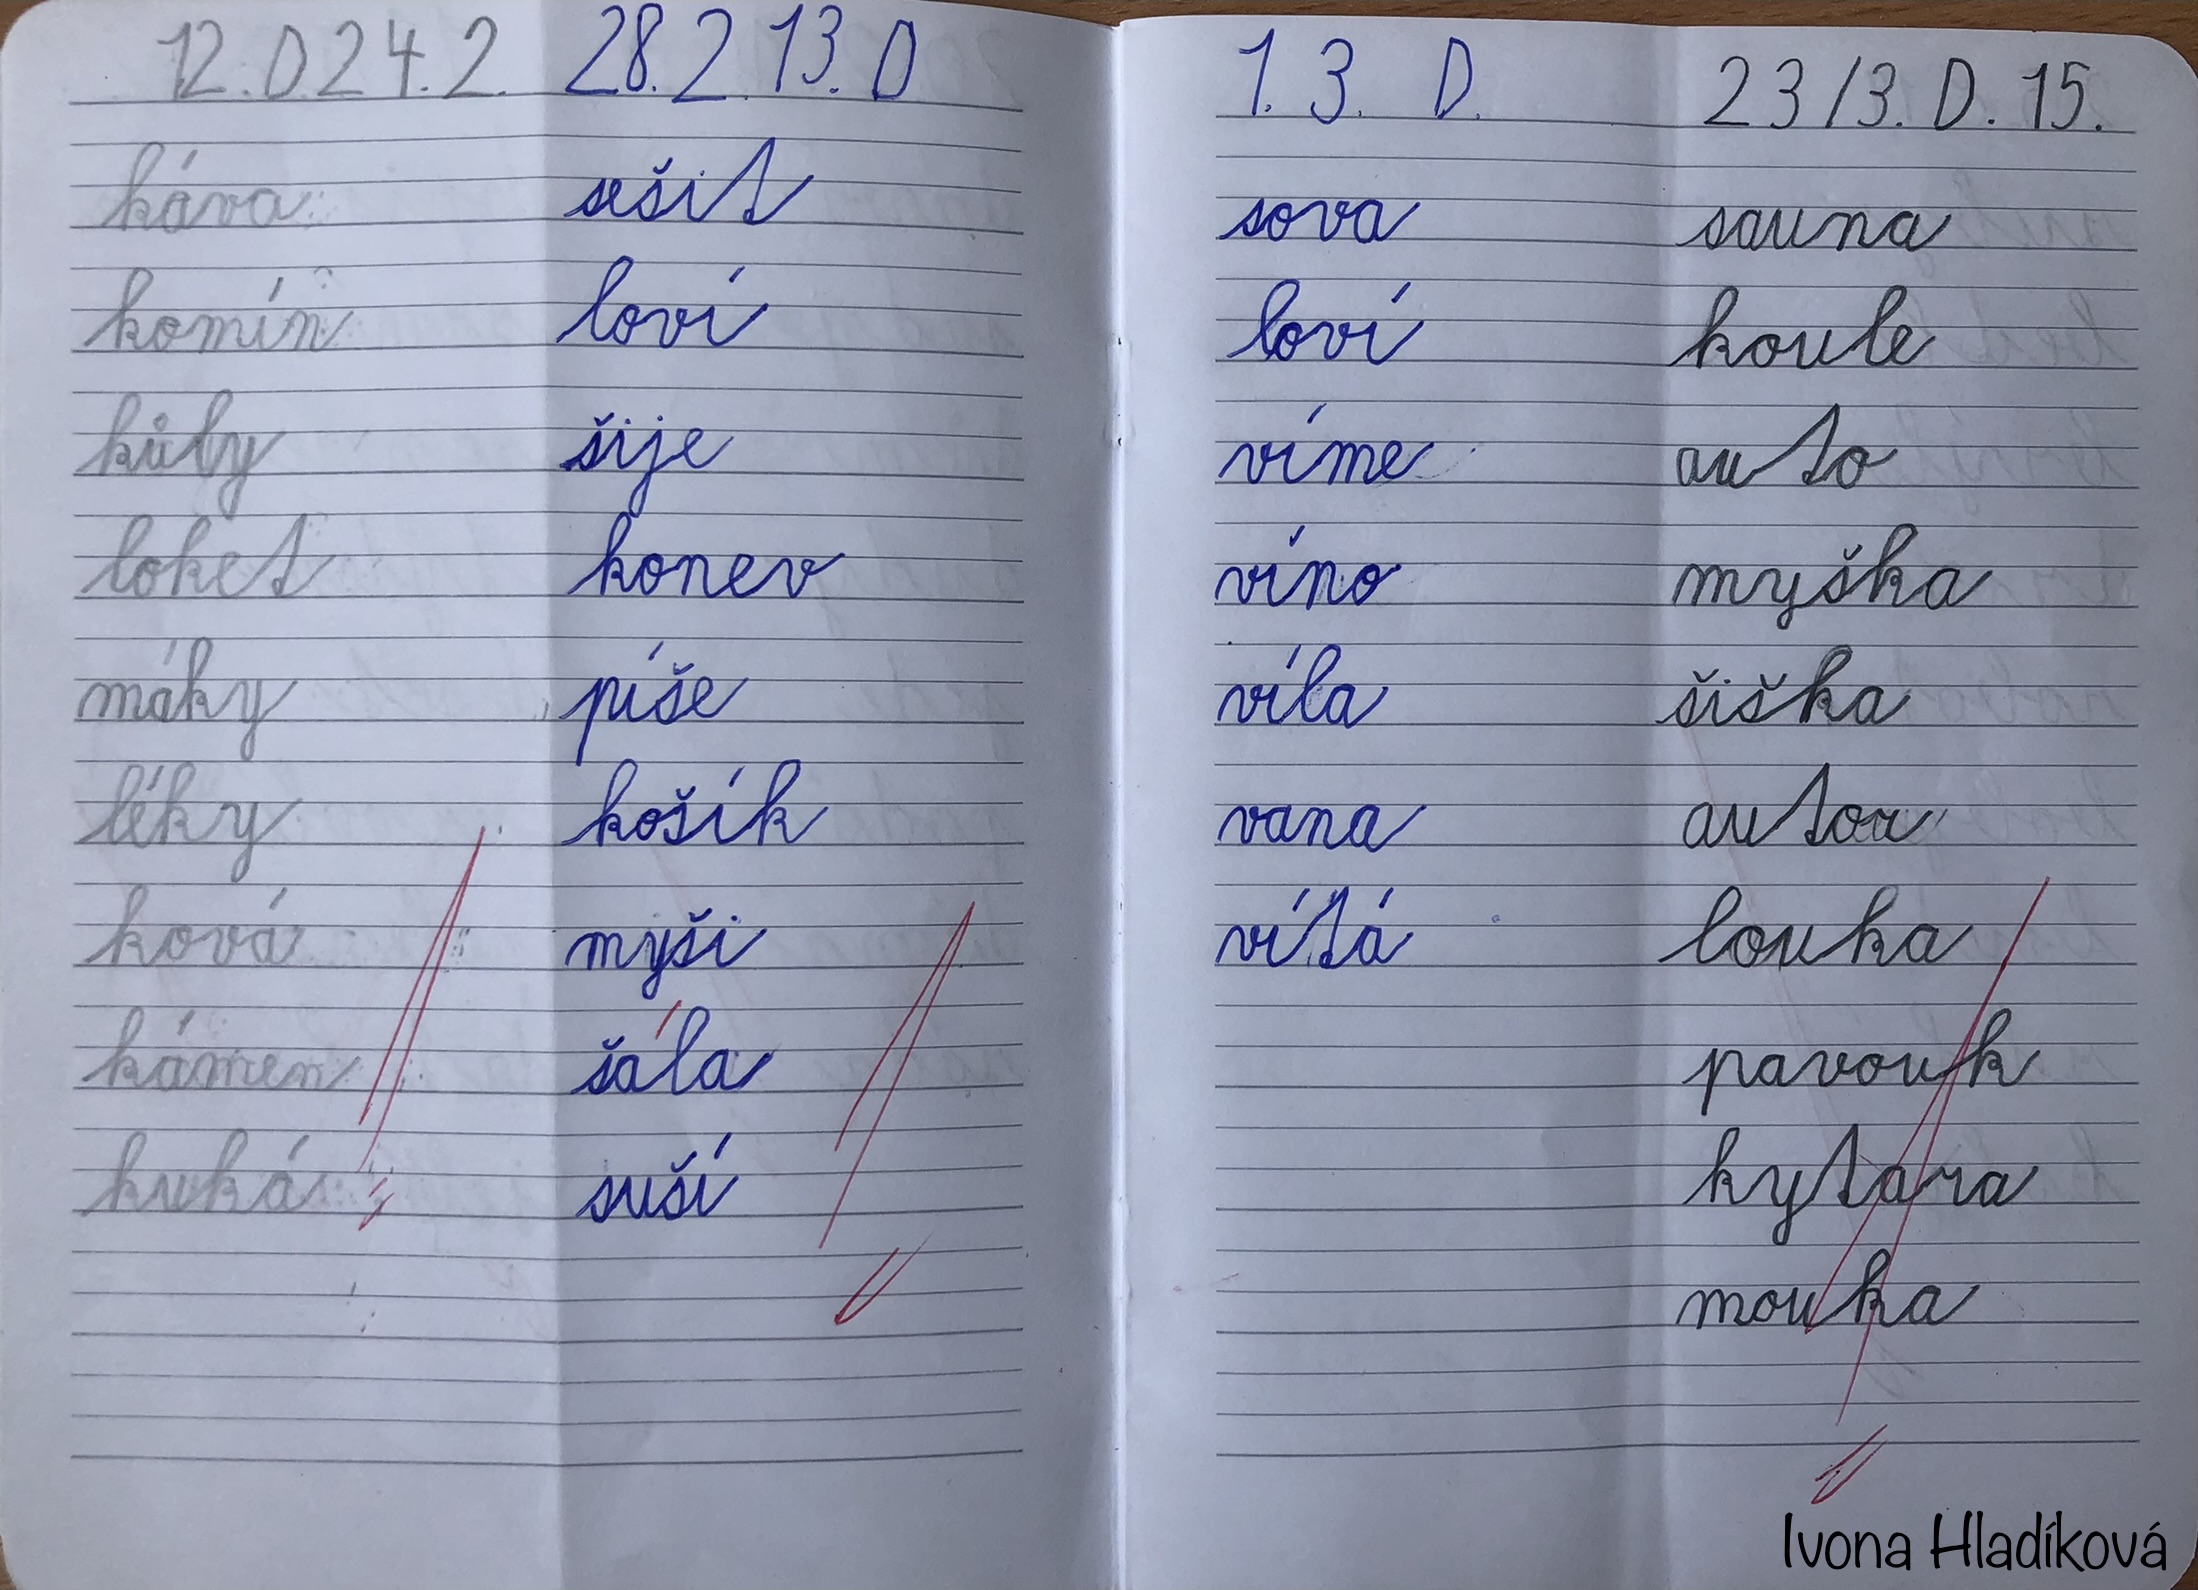 12. D 24. 2.
káva
komín
kůly
loket
máky
léky
ková
kámen
kuká
28. 2. 13. D
sešit
loví
šije
konev
píše
košík
myši
šála
suší
1. 3. D.
sova
loví
víme
víno
víla
vana
vítá
23/3. D. 15.
sauna
koule
auto
myška
šiška
autor
louka
pavouk
kytara
mouka
Ivona Hladíková